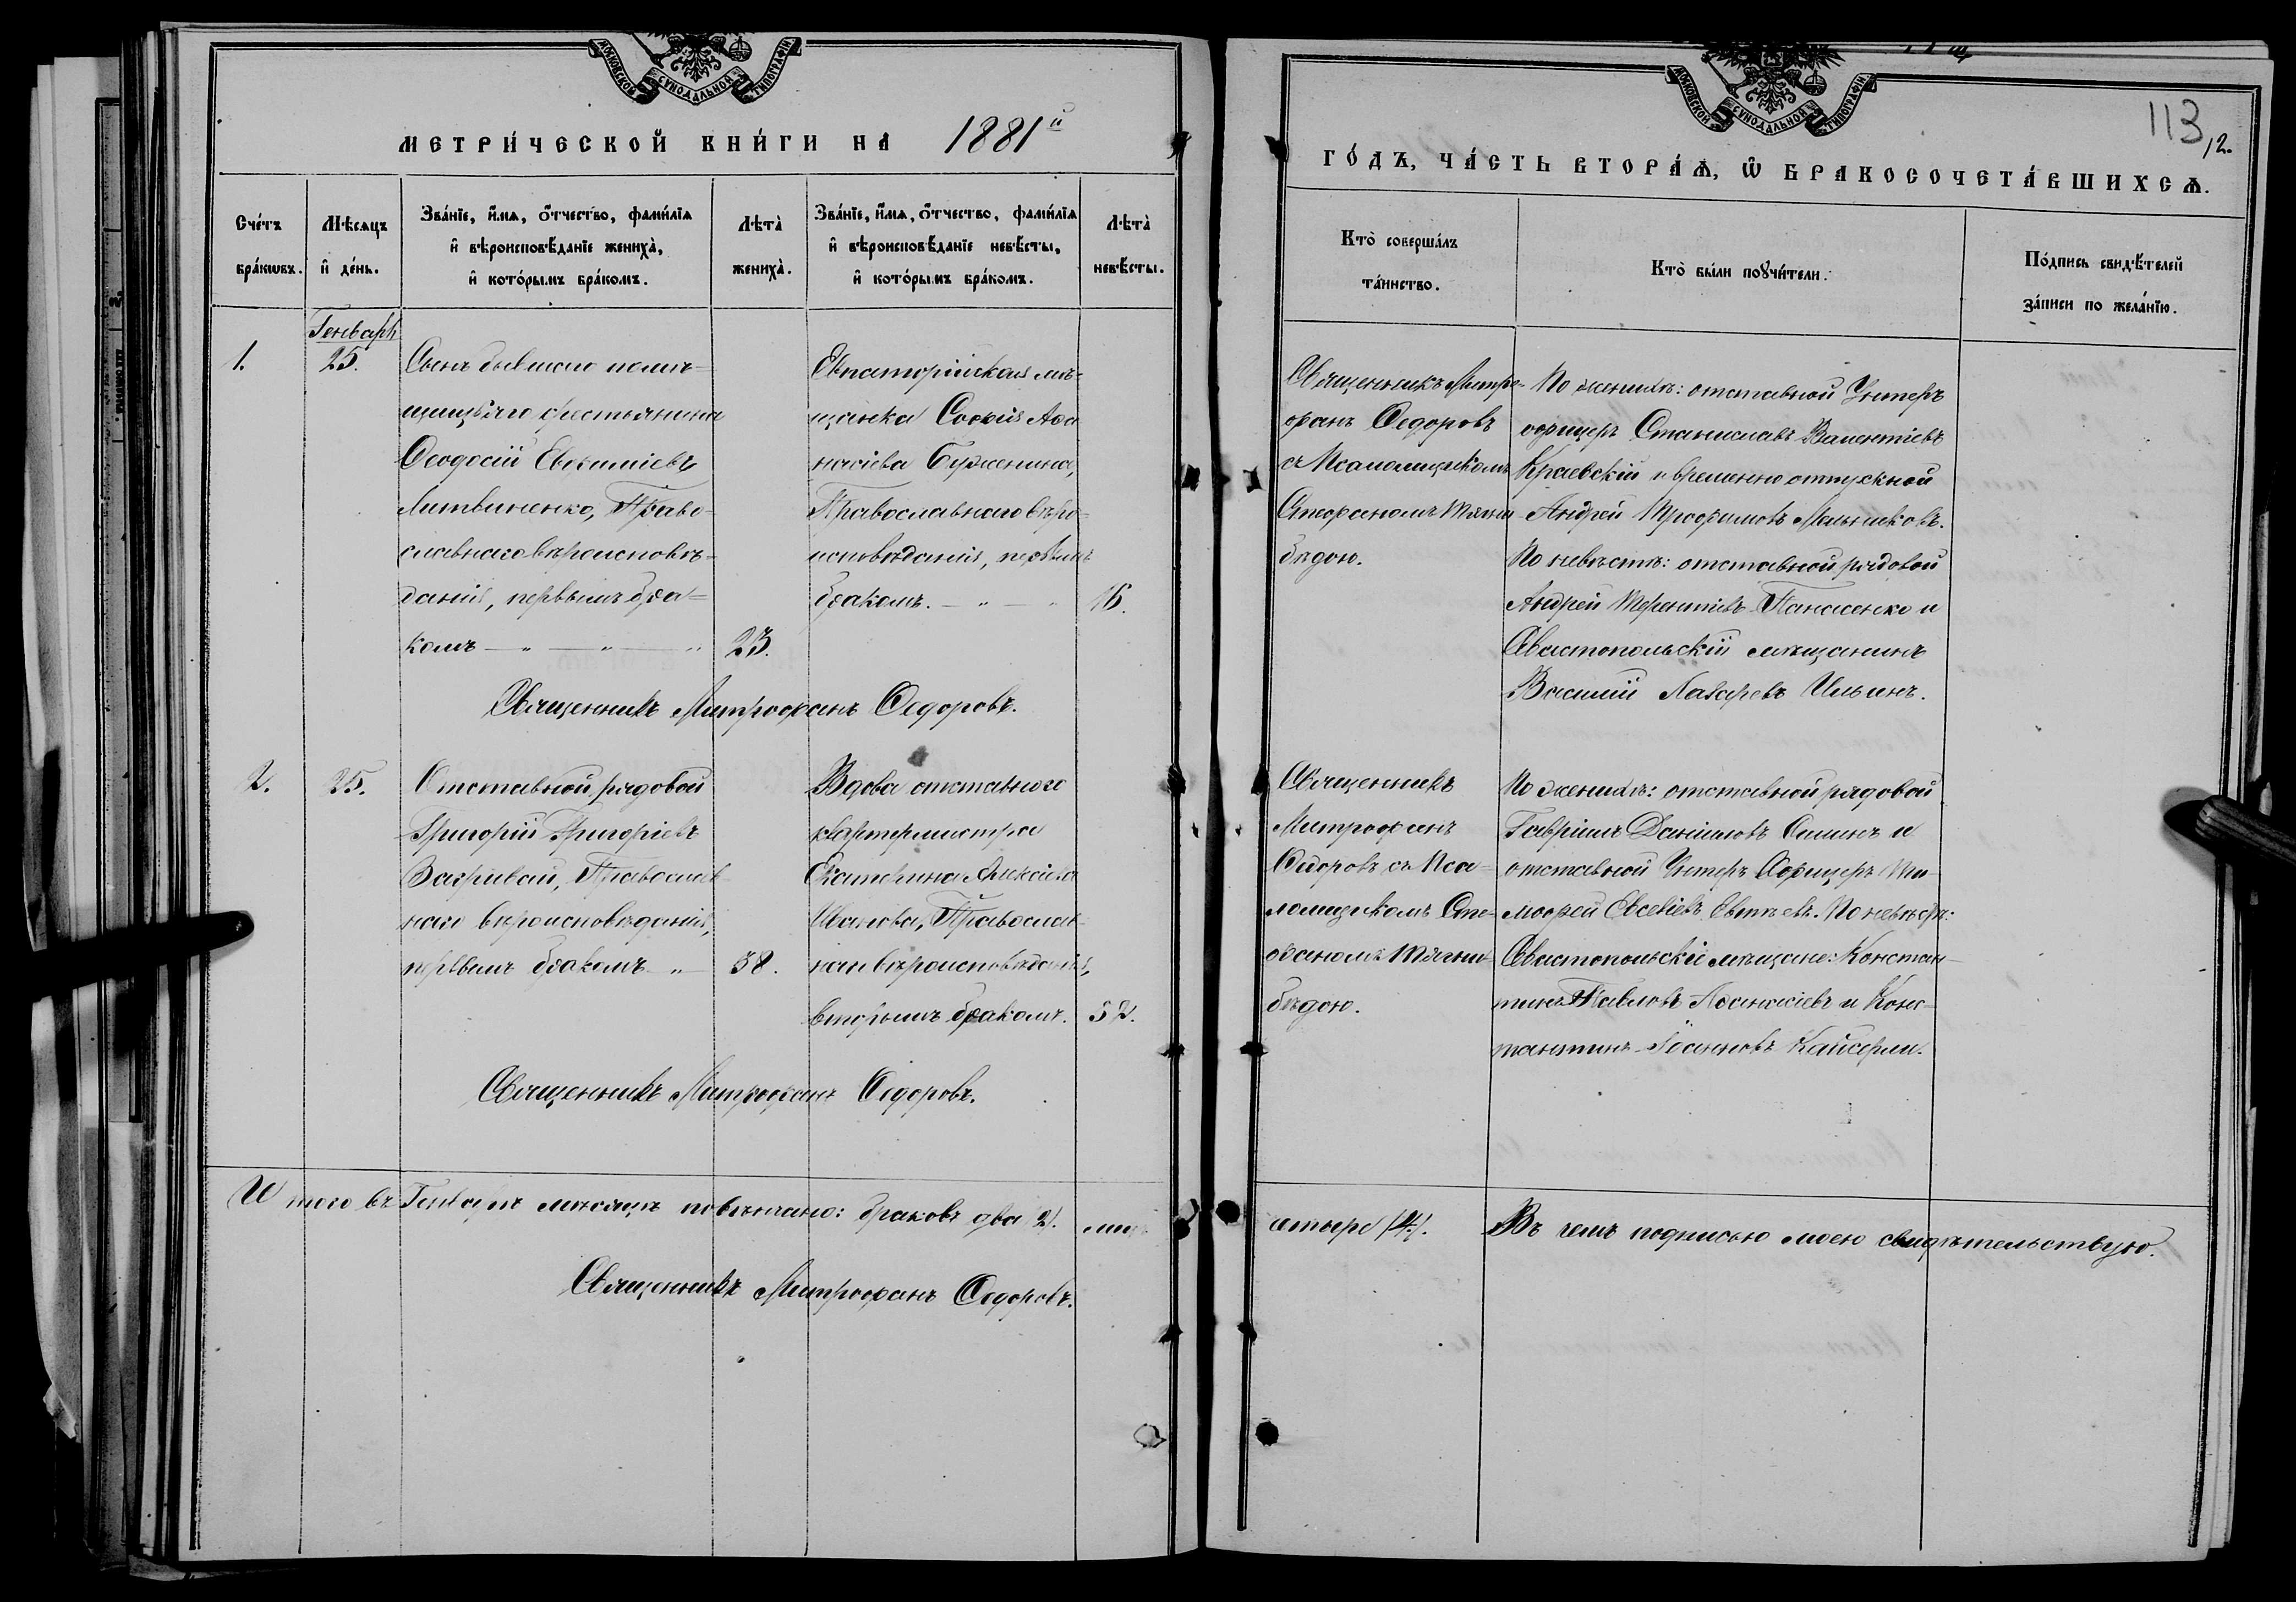 МОСКОВСКОЙ СѴНОДАЛЬНОЙ ТИПОГРАФІИ
МЕТРИ́ЧЕСКОЙ КНИ́ГИ НА 1881й
Сче́тъ бра́кѡвъ.
Мѣ́сяцъ и҆ де́нь.
Зва́нїе, и҆́мѧ, о҆́тчество, фами́лїѧ
и҆ вѣроисповѣ́данїе жениха̀,
и҆ кото́рымъ бра́комъ.
Лѣта̀ жениха̀.
Зва́нїе, и҆́мѧ, о҆́тчество, фами́лїѧ
и҆ вѣроисповѣ́данїе невѣ́сты,
и҆ кото́рымъ бра́комъ.
Лѣта̀ невѣ́сты.
Генварь
1.
25.
Сынъ бывшаго помѣ-
щицьяго крестьянина
Ѳеодосій Евѳиміевъ
Литвиненко, Право-
славнаго вѣроисповѣ-
данія, первымъ бра-
комъ
23.
Евпаторійская мѣ-
щанка Софія Аѳа
насіева Буженина,
Православнаго вѣро-
исповѣданія, первымъ
бракомъ.
16.
Священникъ Митрофанъ Ѳедоровъ.
2.
25.
Отставной рядовой
Григорій Григоріевъ
Православ
наго вѣроисповѣданія,
первымъ бракомъ
58.
Вдова отставнаго
квартермистра
Екатерина Алексіева
Иванова, Православ-
наго вѣроисповѣданія,
вторымъ бракомъ.
52.
Священникъ Митрофанъ Ѳедоровъ.
Итого въ Генварѣ мѣсяцѣ повѣнчано: браковъ два /2/.
Священникъ Митрофанъ Ѳедоровъ.
МОСКОВСКОЙ СѴНОДАЛЬНОЙ ТИПОГРАФІИ
113
12.
ГО́ДЪ, ЧА́СТЬ ВТОРА́Ѧ, Ѡ҆ БРАКОСОЧЕТА́ВШИХСѦ.
Кто̀ соверша́лъ
та́инство.
Кто̀ бы́ли поꙋчи́тели.
По́дпись свидѣ́телей
за́писи по жела́нїю.
Священникъ Митро-
фанъ Ѳедоровъ
съ Псаломщикомъ
Стефаномъ Тягни
бѣдою.
По женихѣ: отставной Унтеръ
офицеръ Станиславъ Валентіевъ
Краевскій и временно отпускной
Андрей Трофимовъ Мельниковъ.
По невѣстѣ: отставной рядовой
Андрей Терентіевъ Панасенко и
Севастопольскій мѣщанинъ
Василій Лазаревъ Ильинъ.
Священникъ
Митрофанъ
Ѳедоровъ съ Пса-
ломщикомъ Сте-
фаномъ Тягни-
бѣдою.
По женихѣ: отставной рядовой
Гавріилъ Даніиловъ и
отставной Унтеръ Офицеръ Ти-
моѳей Евсевіевъ По невѣстѣ:
Севастопольскіе мѣщане: Констан-
тинъ Павловъ Аѳанасіевъ и Конс-
тантинъ Іоанновъ Кайсерли.
четыре /4/. Въ чемъ подписью моею свидѣтельствую.